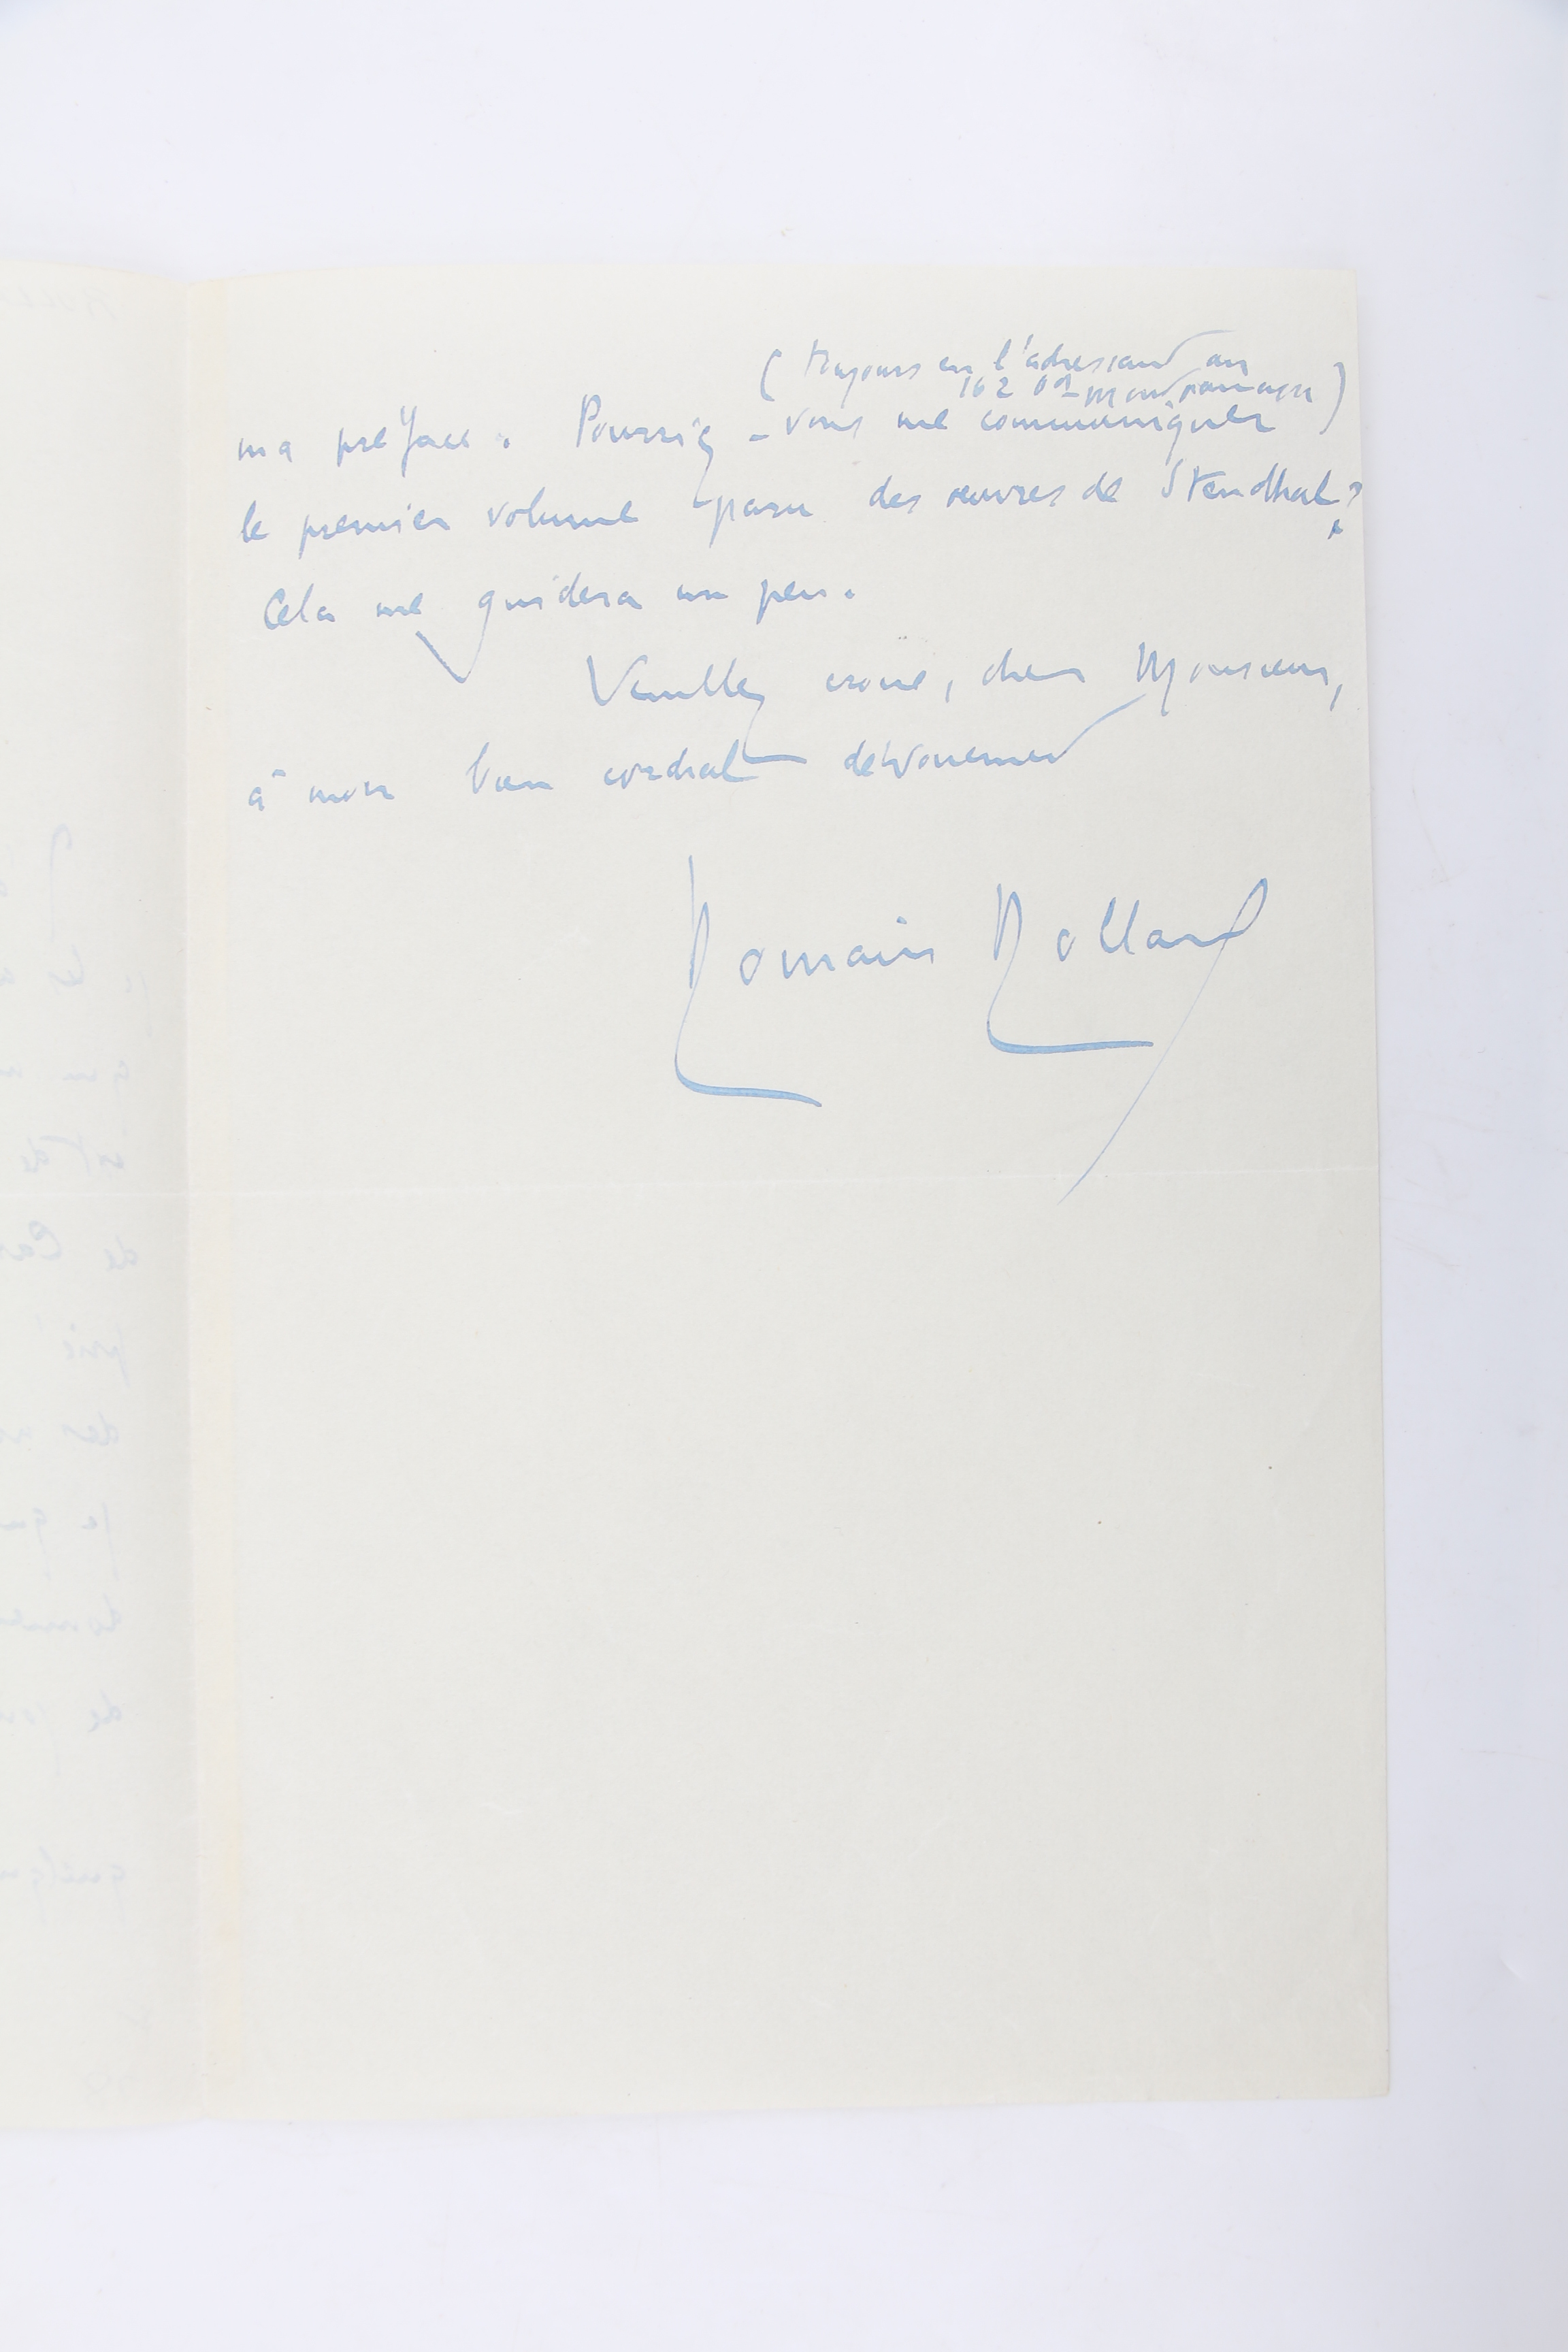 (toujours en l'adressant au
162 Bd Montparnasse)
ma préface. Pourriez-vous me communiquer
le premier volume paru des œuvres de Stendhal?
Cela me guidera un peu.
Veuillez croire, cher Monsieur,
à mon bien cordial dévouement
Romain Rolland